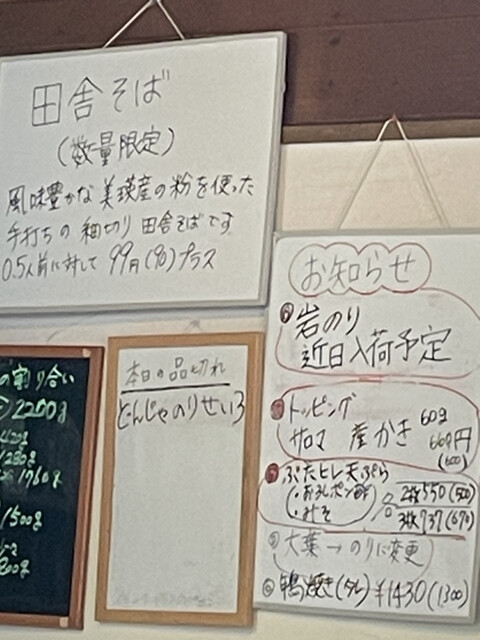 田舎そば
(数量限定)
風味豊かな美瑛産の粉を使った
手打ちの細切り田舎そばです
0.5人前に対して 99円(90)プラス
お知らせ
岩のり
近日入荷予定
トッピング
サロマ産かき 60g
660円
(600)
ぶたヒレ天ぷら
・おろしポン酢
・みそ
2枚550(500)
3枚737(670)
大葉→のりに変更
鴨焼き(タレ)¥1430(1300)
本日の品切れ
とんじゃのりせいろ
の割り合い
2200g
1760g
1500g